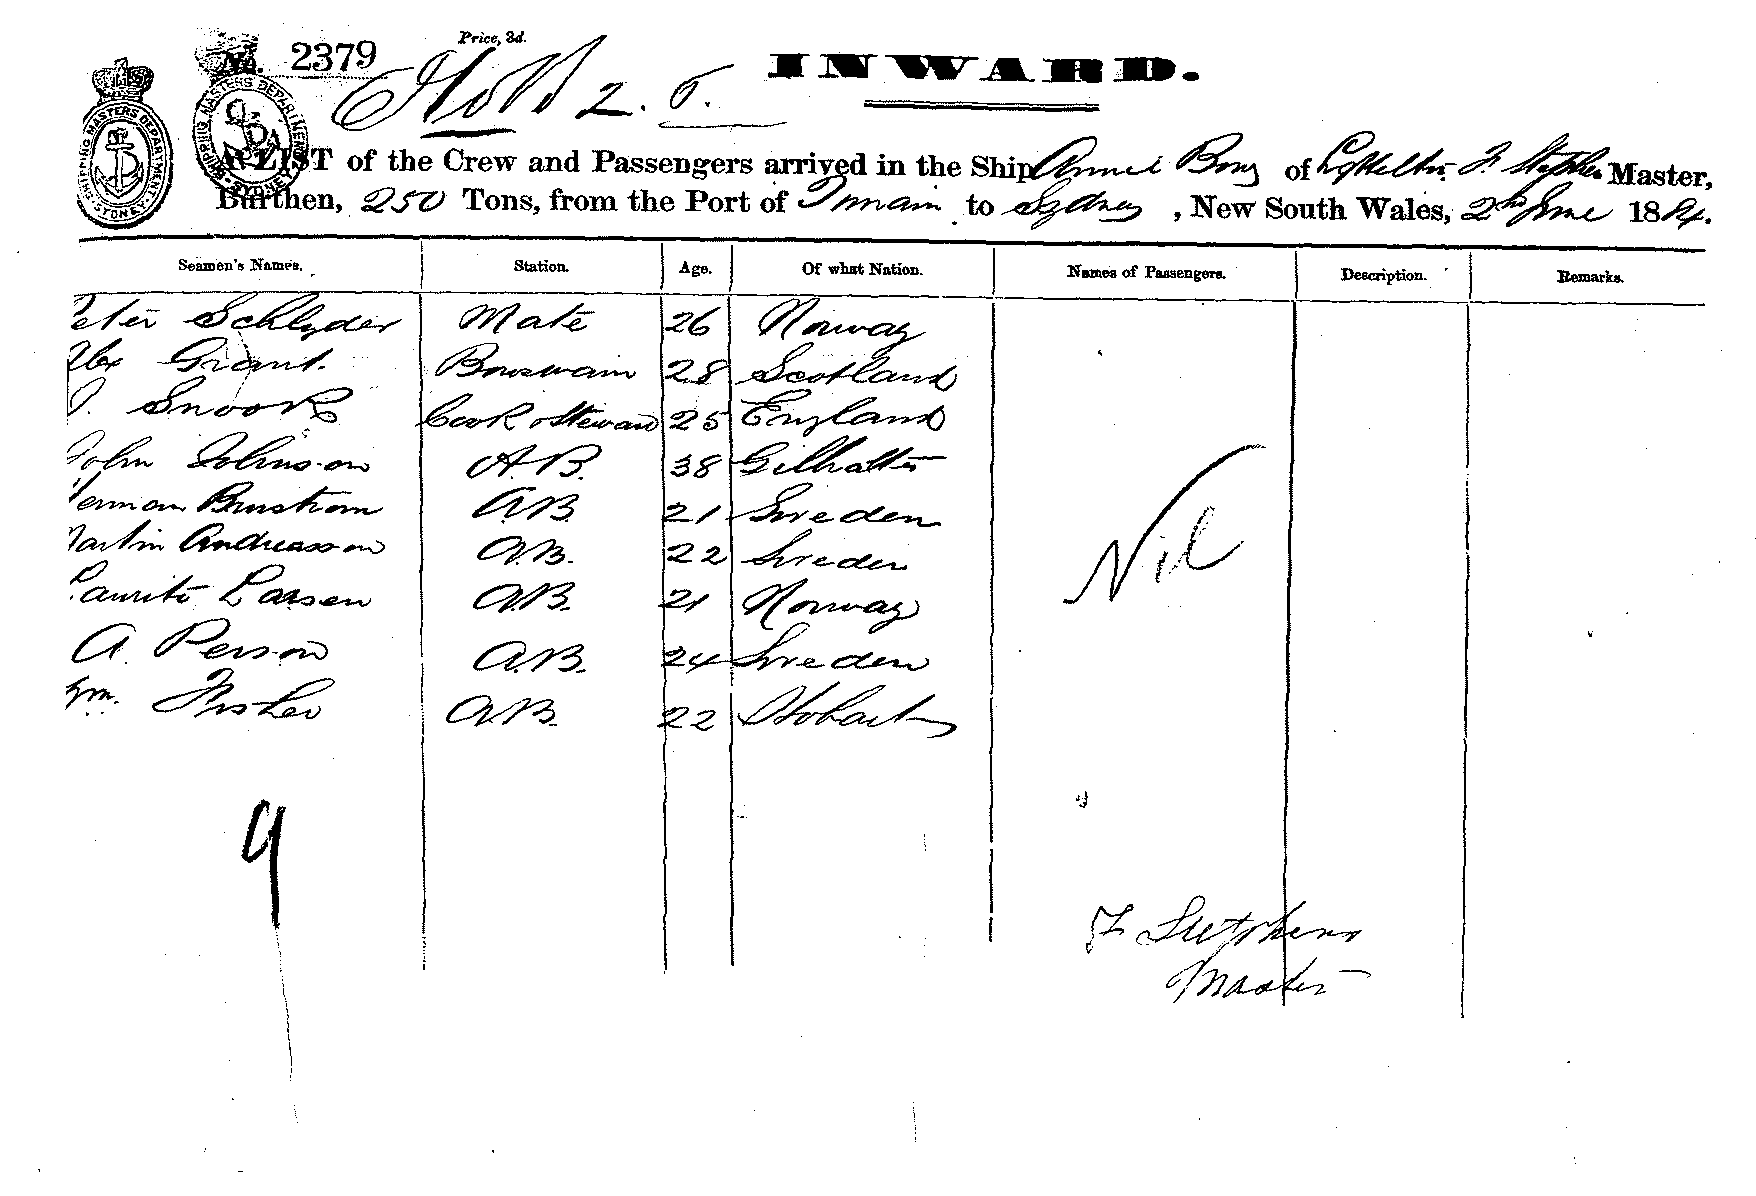 No. 2379
Price, 3d.
INWARD.
SHIPPING MASTERS DEPARTMENT SYDNEY
SHIPPING MASTERS DEPARTMENT SYDNEY
A LIST of the Crew and Passengers arrived in the Ship Annie Bony of Lyttelton F Stephens Master,
Burthen, 250 Tons, from the Port of to Sydney, New South Wales, 2nd June 1884.
Seamen's Names. Station. Age. Of what Nation. Names of Passengers. Description. Remarks.
Peter Schlyder Mate 26 Norway
Alex Grant. Boweswain 28 Scotland
J. Snook Cook & Steward 25 England
John Johnson A.B. 38 Gilbralter
Herman Brustrom A.B. 21 Sweden
Martin Andreasson A.B. 22 Sweden
Lauritz Larsen A.B. 21 Norway
A. Person A.B. 24 Sweden
Wm. Fisher A.B. 22 Hobart
Nil
9
F Stephens
Master